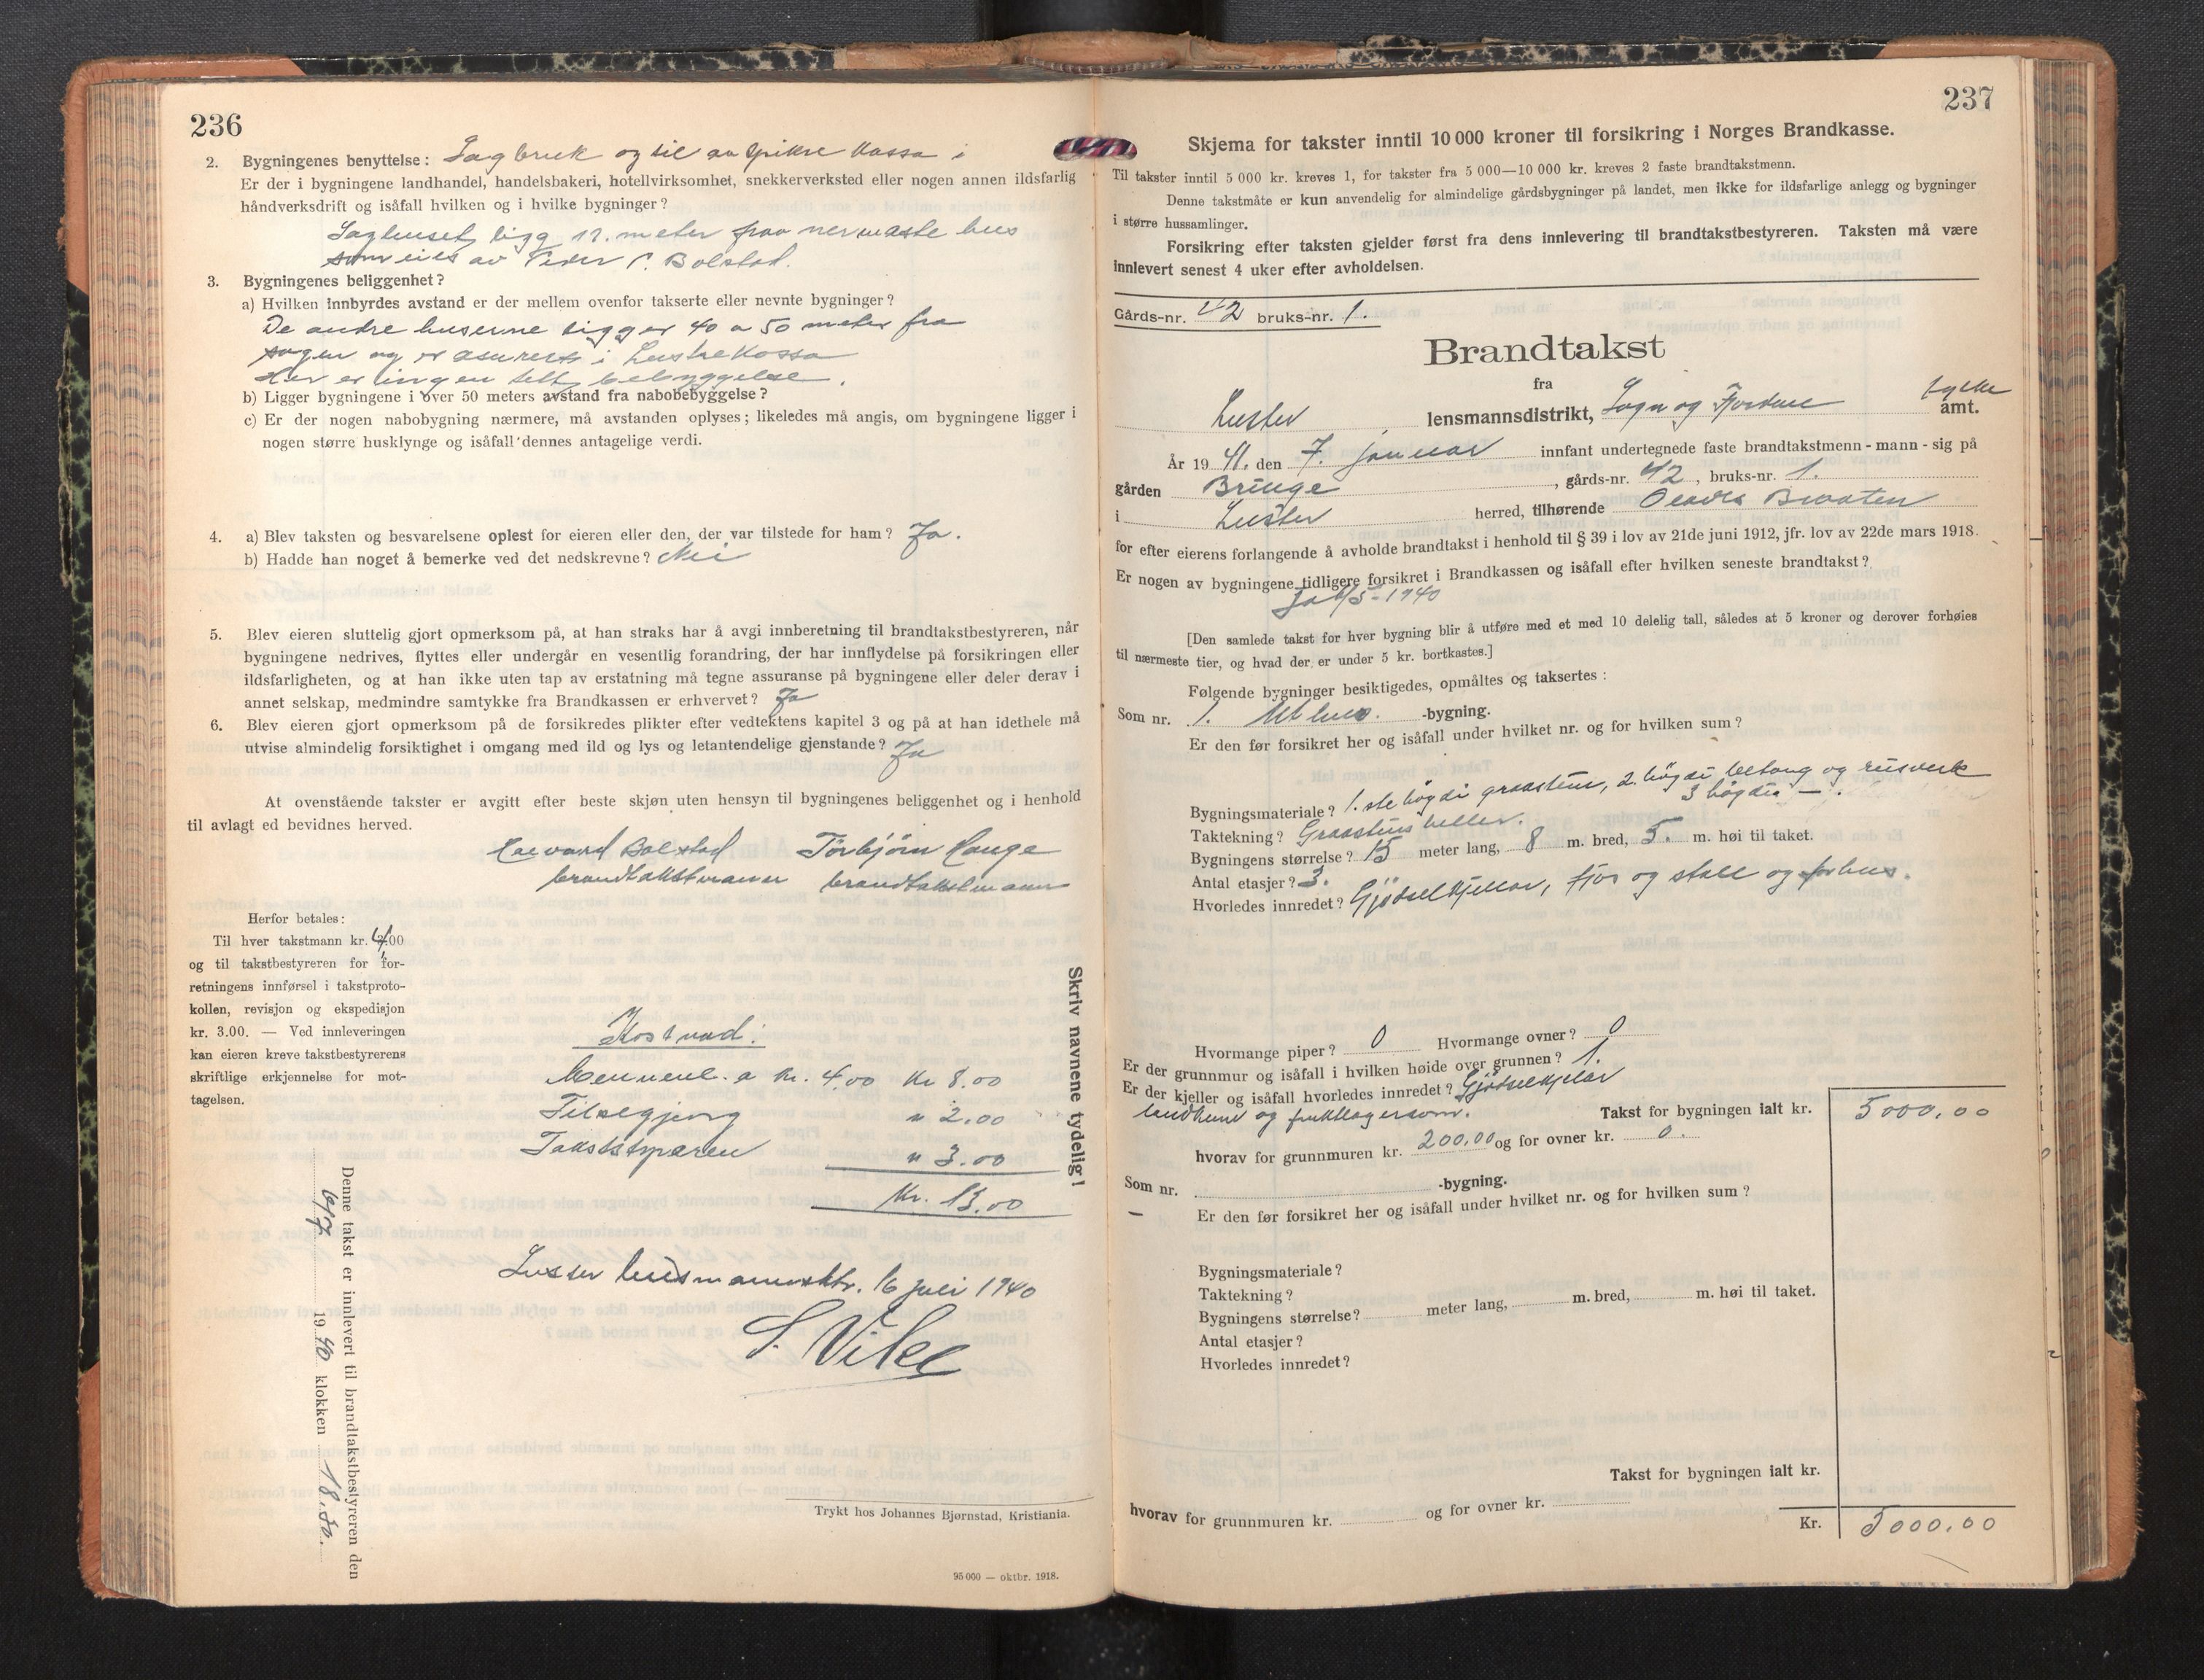 236
2. Bygningenes benyttelse: Sagbruk og til aa spikre kassa i
Er der i bygningene landhandel, handelsbakeri, hotellvirksomhet, snekkerverksted eller nogen annen ildsfarlig
håndverksdrift og isåfall hvilken og i hvilke bygninger?
Saghuset ligg 12. meter fraa nermaste hus
som eies av Peder P. Bolstad.
3. Bygningenes beliggenhet?
a) Hvilken innbyrdes avstand er der mellem ovenfor takserte eller nevnte bygninger?
De andre husenne ligger 40 a 50 meter fra
sagen og er asurert i Lustrekassa
Her er ingen tett bebyggelse.
b) Ligger bygningene i over 50 meters avstand fra nabobebyggelse?
c) Er der nogen nabobygning nærmere, må avstanden oplyses; likeledes må angis, om bygningene ligger i
nogen større husklynge og isåfall dennes antagelige verdi.
4. a) Blev taksten og besvarelsene oplest for eieren eller den, der var tilstede for ham? Ja.
b) Hadde han noget å bemerke ved det nedskrevne? Nei
5. Blev eieren sluttelig gjort opmerksom på, at han straks har å avgi innberetning til brandtakstbestyreren, når
bygningene nedrives, flyttes eller undergår en vesentlig forandring, der har innflydelse på forsikringen eller
ildsfarligheten, og at han ikke uten tap av erstatning må tegne assuranse på bygningene eller deler derav i
annet selskap, medmindre samtykke fra Brandkassen er erhvervet? Ja
6. Blev eieren gjort opmerksom på de forsikredes plikter efter vedtektens kapitel 3 og på at han idethele må
utvise almindelig forsiktighet i omgang med ild og lys og letantendelige gjenstande? Ja
At ovenstående takster er avgitt efter beste skjøn uten hensyn til bygningenes beliggenhet og i henhold
til avlagt ed bevidnes herved.
Haavard Bolstad Torbjörn Hauge
brandtakstmann brandtakstmann
Herfor betales:
Til hver takstmann kr. 4,00
og til takstbestyreren for for-
retningens innførsel i takstproto-
kollen, revisjon og ekspedisjon
kr. 3.00. — Ved innleveringen
kan eieren kreve takstbestyrerens
skriftlige erkjennelse for mot-
tagelsen.
Kostnad:
Mennene a Kr. 4.00 Kr 8.00
Tilseigjerg " 2.00
Takststyraren " 3.00
Kr. 13.00
Luster lensmannsktr. 16 juli 1940
S. Vike
Skriv navnene tydelig!
Denne takst er innlevert til brandtakstbestyreren den
6/7 1940 klokken 18.30.
Trykt hos Johannes Bjørnstad, Kristiania.
95 000 — oktbr. 1918.
237
Skjema for takster inntil 10 000 kroner til forsikring i Norges Brandkasse.
Til takster inntil 5 000 kr. kreves 1, for takster fra 5 000—10 000 kr. kreves 2 faste brandtakstmenn.
Denne takstmåte er kun anvendelig for almindelige gårdsbygninger på landet, men ikke for ildsfarlige anlegg og bygninger
i større hussamlinger.
Forsikring efter taksten gjelder først fra dens innlevering til brandtakstbestyreren. Taksten må være
innlevert senest 4 uker efter avholdelsen.
Gårds-nr. 42 bruks-nr. 1.
Brandtakst
fra
Luster lensmannsdistrikt, Sogn og Fjordane fylke amt.
År 1941. den 7. januar innfant undertegnede faste brandtakstmenn - mann - sig på
gården Bringe, gårds-nr. 42, bruks-nr. 1.
i Luster herred, tilhørende Braaten
for efter eierens forlangende å avholde brandtakst i henhold til § 39 i lov av 21de juni 1912, jfr. lov av 22de mars 1918.
Er nogen av bygningene tidligere forsikret i Brandkassen og isåfall efter hvilken seneste brandtakst?
Ja 6/5-1940
[Den samlede takst for hver bygning blir å utføre med et med 10 delelig tall, således at 5 kroner og derover forhøies
til nærmeste tier, og hvad der er under 5 kr. bortkastes.]
Følgende bygninger besiktigedes, opmåltes og taksertes:
Som nr. 1. Uthus. -bygning.
Er den før forsikret her og isåfall under hvilket nr. og for hvilken sum?
Bygningsmateriale? 1.ste högdi graastein, 2. högdi betong og reisverk
3 högdi —.
Taktekning? Graasteinsheller.
Bygningens størrelse? 15 meter lang, 8 m. bred, 5. m. høi til taket.
Antal etasjer? 3.
Hvorledes innredet? Gjödselkjellar, fjös og stall og forhus.
Hvormange piper? 0 Hvormange ovner? 0
Er der grunnmur og isåfall i hvilken høide over grunnen? 1.
Er der kjeller og isåfall hvorledes innredet? Gjödselkjelar
landkum og fruktlagerrom. Takst for bygningen ialt kr. 5000,00
hvorav for grunnmuren kr. 200,00 og for ovner kr. 0.
Som nr. -bygning.
— Er den før forsikret her og isåfall under hvilket nr. og for hvilken sum?
Bygningsmateriale?
Taktekning?
Bygningens størrelse? meter lang, m. bred, m. høi til taket.
Antal etasjer?
Hvorledes innredet?
Takst for bygningen ialt kr.
hvorav for grunnmuren kr. og for ovner kr.
Kr. 5000.00